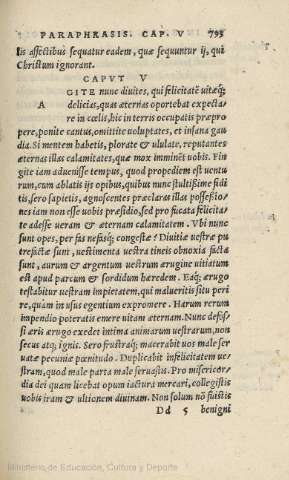 PARAPHRASIS. CAP. V 795
iis affectibus sequatur eadem, quæ sequuntur ij, qui
Christum ignorant.
CAPVT V
A GITE nunc diuites, qui felicitatẽ uitæq́;
delicias, quas æternas oportebat expecta
re in cœlis, hic in terris occupatis præpro
pere, ponite cantus, omittite uoluptates, et insana gau
dia. Si mentem habetis, plorate & ululate, reputantes
æternas illas calamitates, quæ mox imminẽt uobis. Fin
gite iam aduenisse tempus, quod propediem est uentu
rum, cum ablatis ijs opibus, quibus nunc stultißime fidi
tis, sero sapietis, agnoscentes præclaras illas possessio-
nes iam non esse uobis præsidio, sed pro fucata felicita
te adesse ueram & æternam calamitatem. Vbi nunc
sunt opes, per fas nefasq́; congestæ? Diuitiæ uestræ pu
trefactæ sunt, uestimenta uestra tineis obnoxia facta
sunt, aurum & argentum uestrum ærugine uitiatum
est apud parcum & sordidum hæredem. Eaq́; ærugo
testabitur uestram impietatem, qui malueritis situ peri
re, quàm in usus egentium expromere. Harum rerum
impendio poteratis emere uitam æternam. Nunc defos
si æris ærugo exedet intima animarum uestrarum, non
secus atq; ignis. Sero frustraq́; macerabit uos male ser
uatæ pecuniæ pœnitudo. Duplicabit infelicitatem ue-
stram, quod male parta male seruastis. Pro misericor-
dia dei quam licebat opum iactura mercari, collegistis
uobis iram & ultionem diuinam. Non solum nõ fuistis
Dd 5 benigni
Ministerio de Educación, Cultura y Deporte